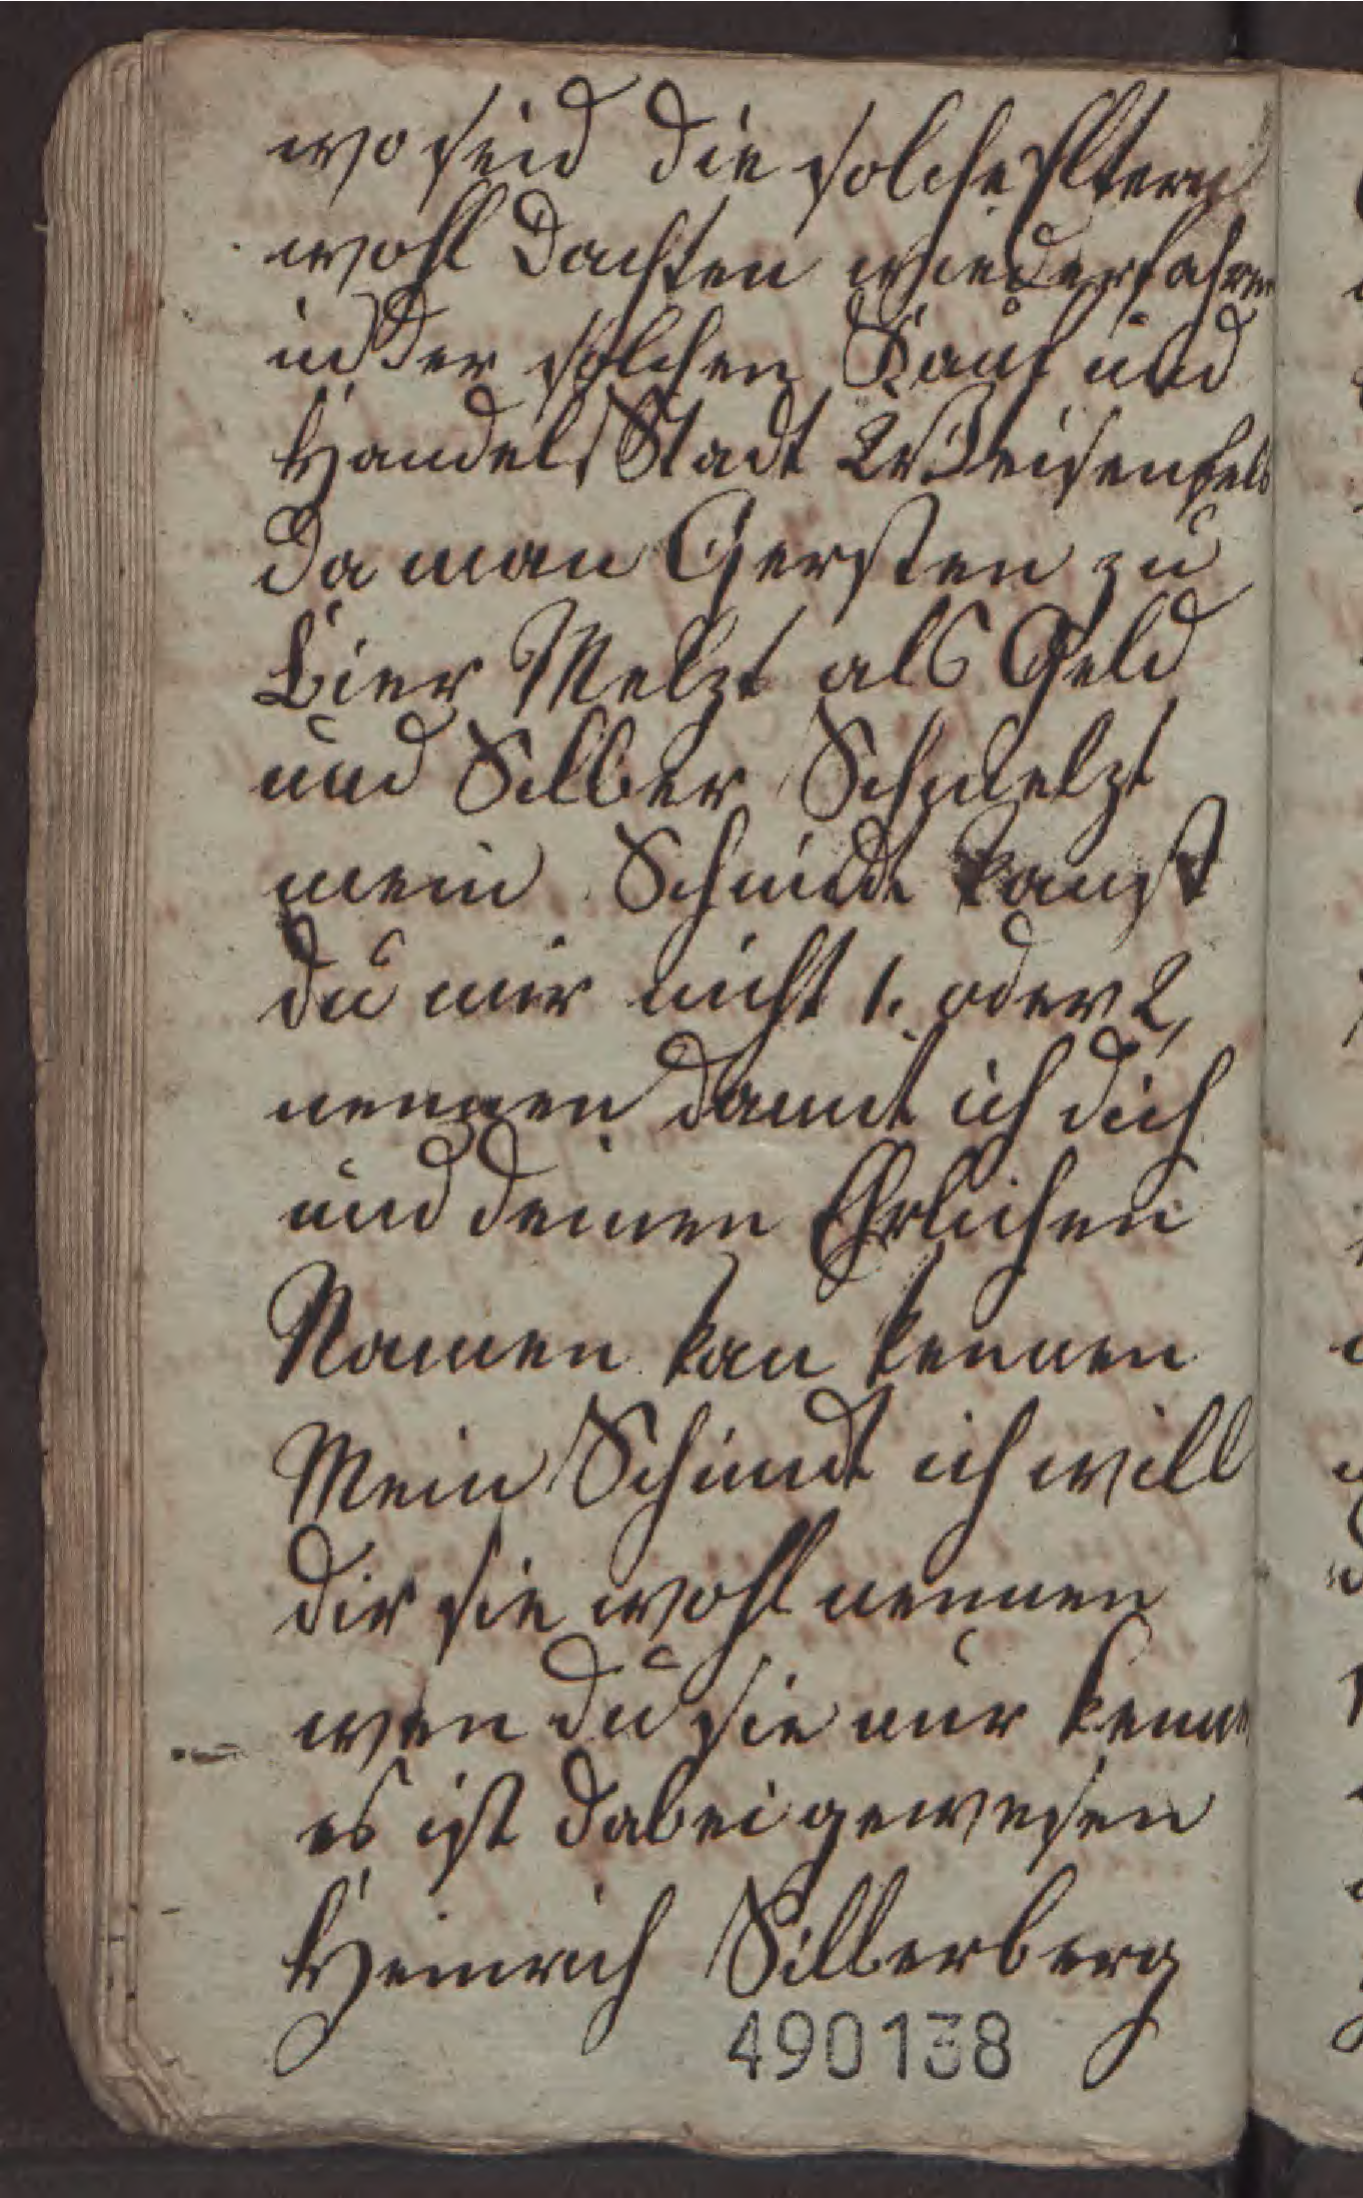 wo seid die solche Eltern
wohl dachten wiederfahren
in der solchen Kauf und
Handels Stadt Weisenfels
da man Gersten zu
Bier Melzt als Geld
und Silber Schmelzt
mein Schmidt kanst
du mir nicht 1. oder 2,
nennen damit ich dich
und deinen Ehrlichen
Namen kan kennen
Mein Schmidt ich will
dir sie wohl nennen
wen du sie nur kenne
es ist dabei gewesen
Heinrich Silberberg
490138